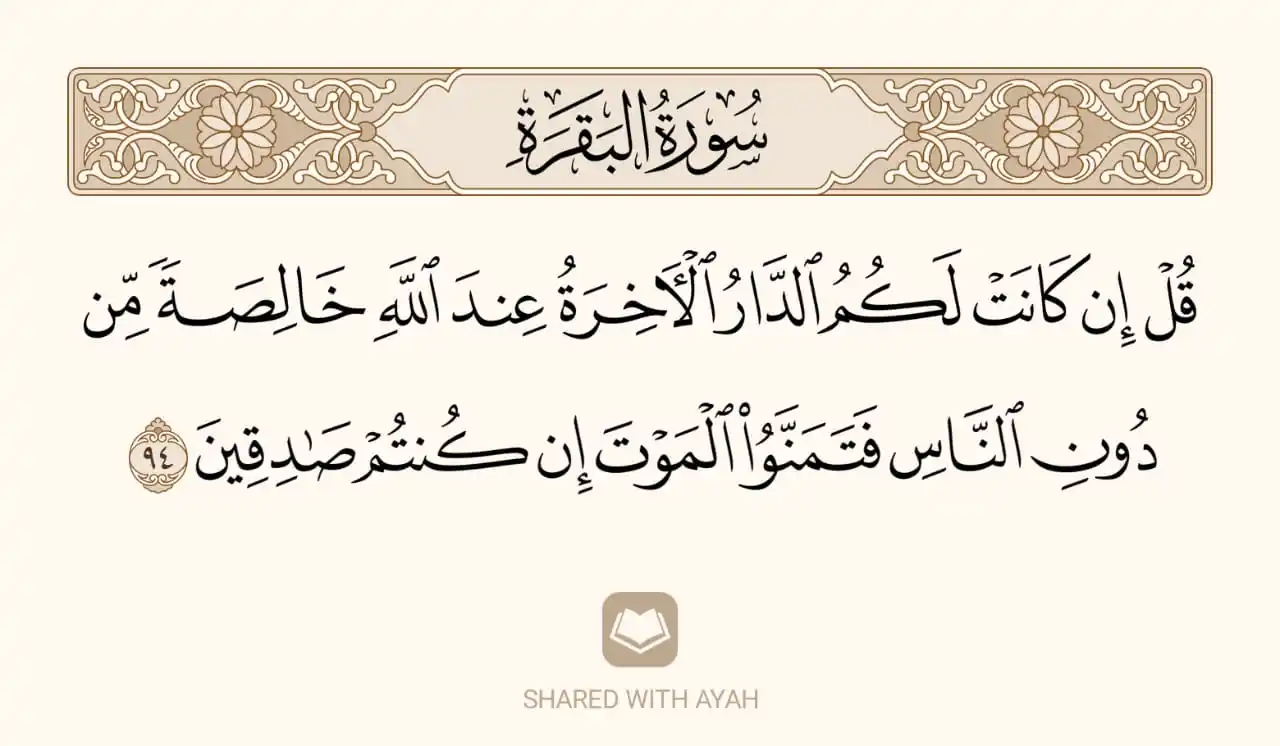 سُورَةُ البَقَرَةِ
قُلْ إِن كَانَتْ لَكُمُ ٱلدَّارُ ٱلْأَخِرَةُ عِندَ ٱللَّهِ خَالِصَةً مِّن
دُونِ ٱلنَّاسِ فَتَمَنَّوُا۟ ٱلْمَوْتَ إِن كُنتُمْ صَٰدِقِينَ ٩٤
SHARED WITH AYAH